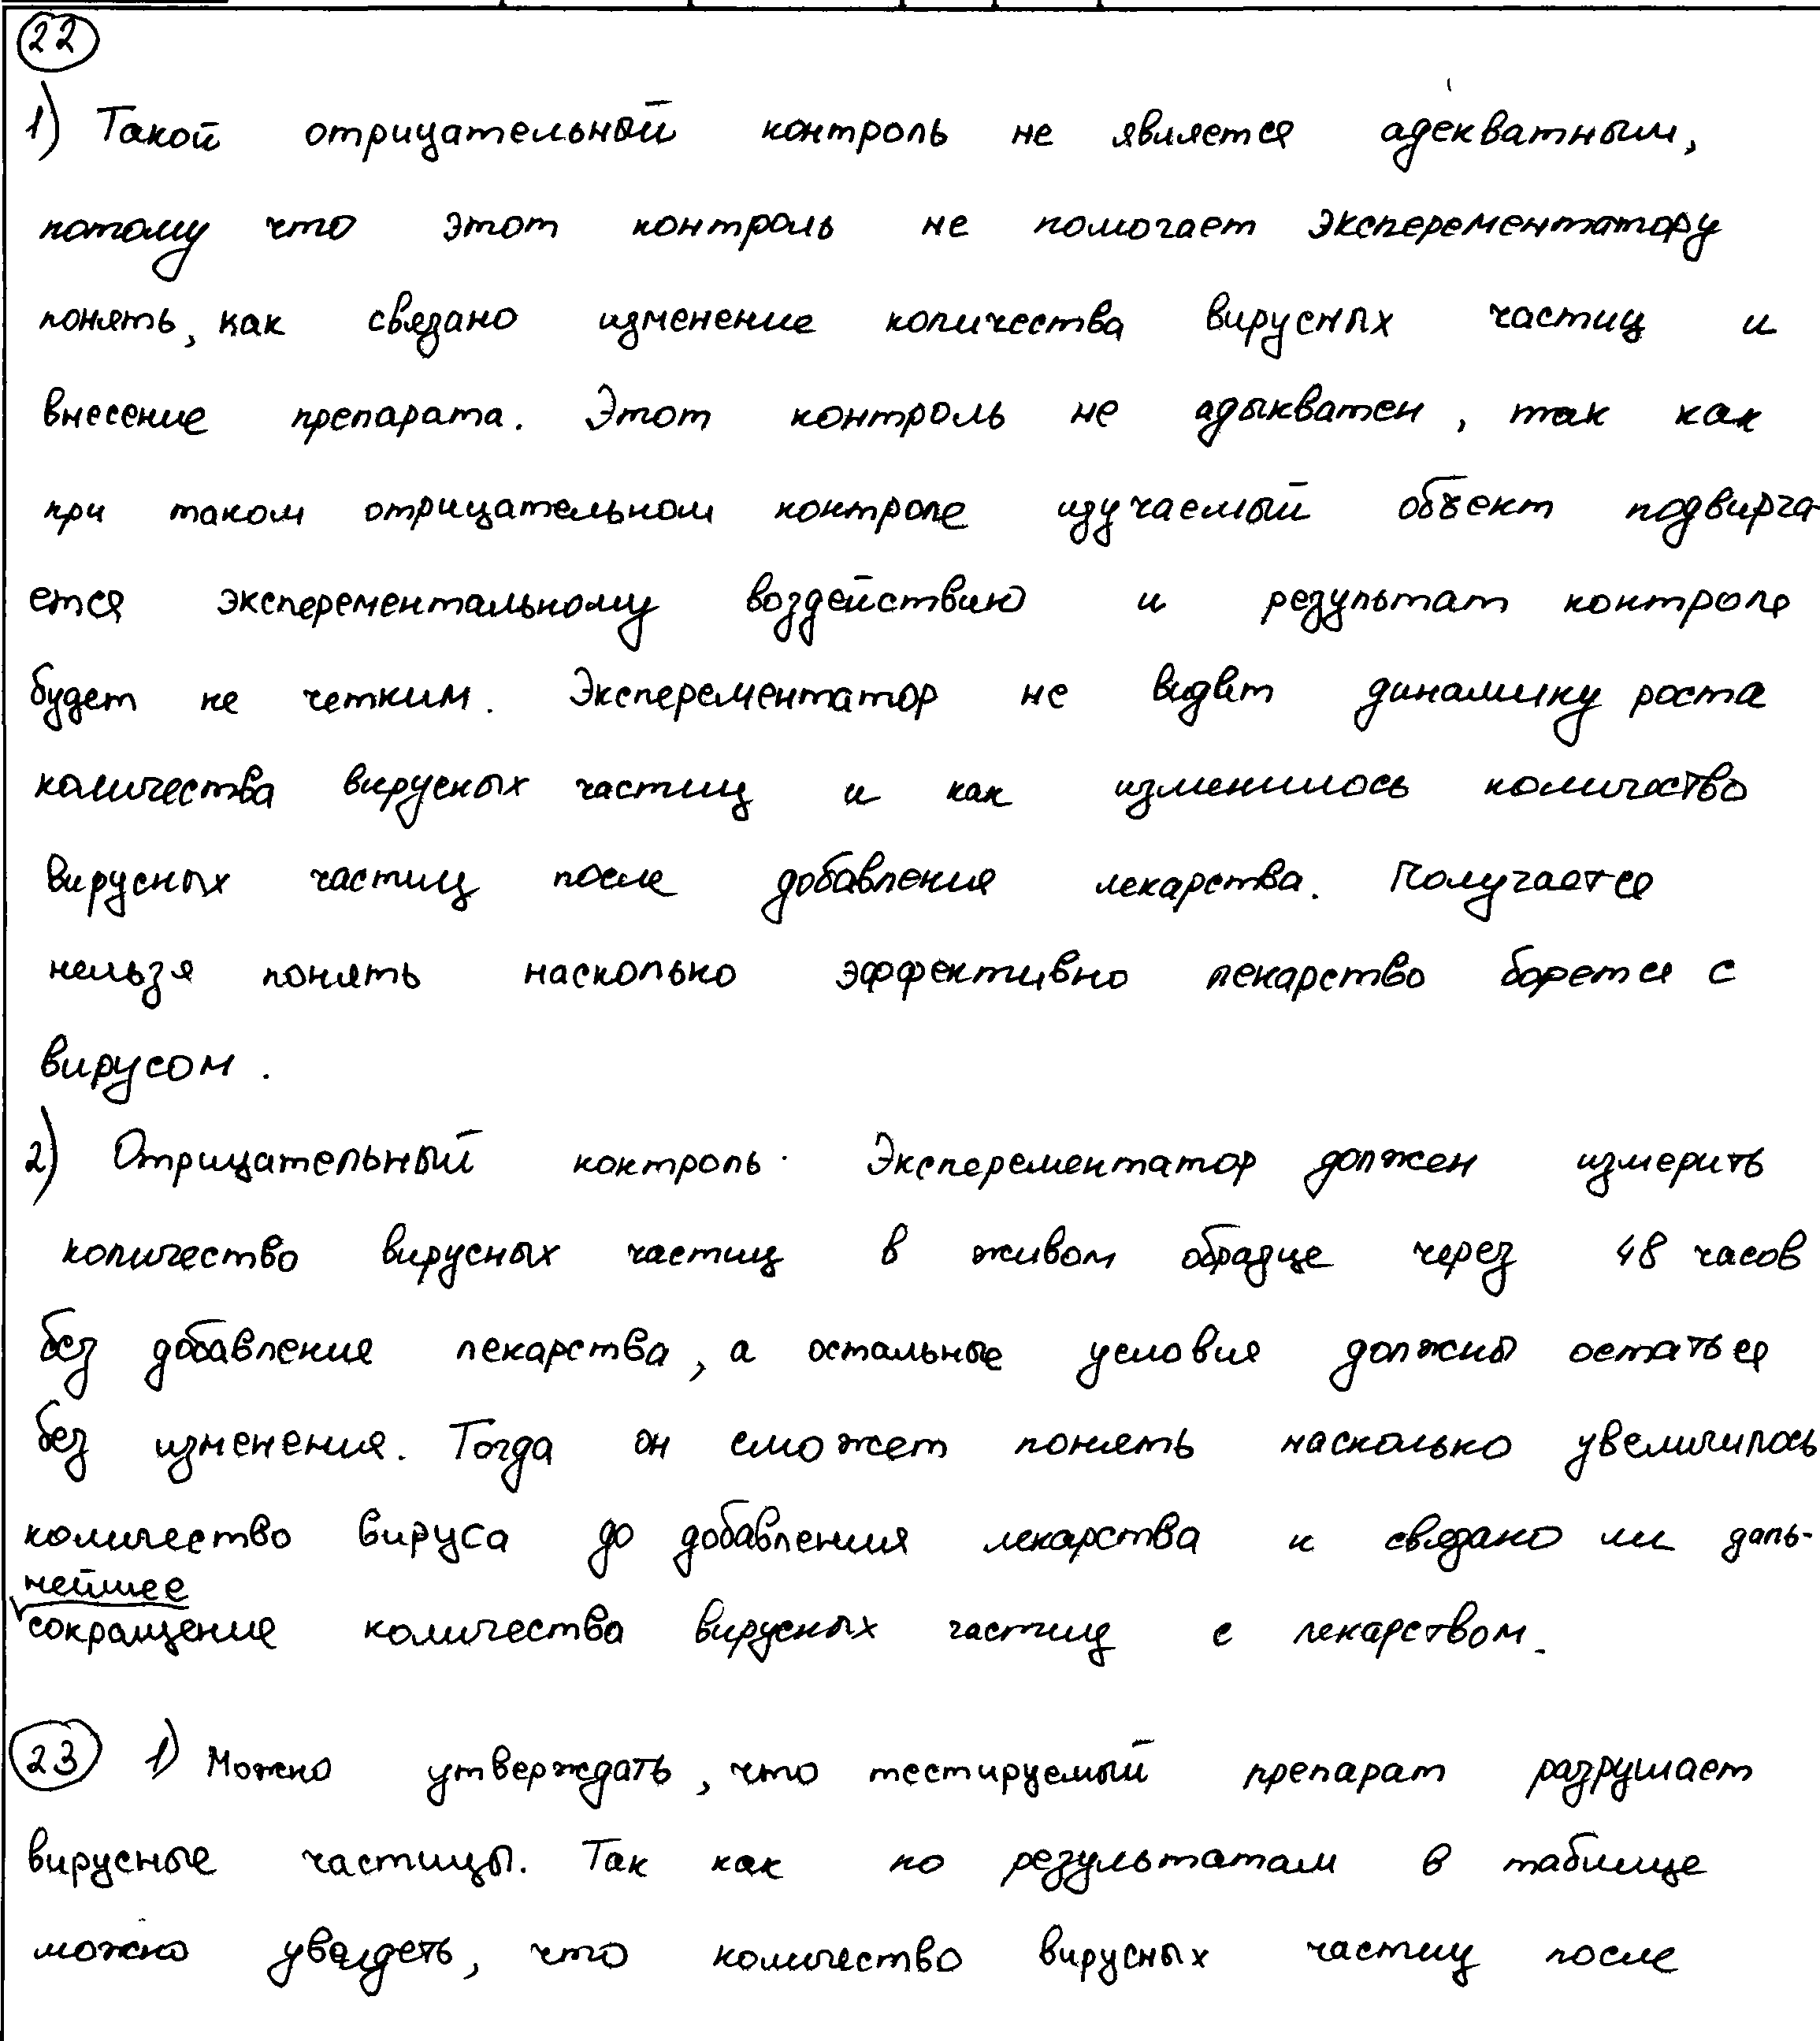 22
1) Такой отрицательный контроль не является адекватным,
потому что этот контроль не помогает эксперементатору
понять, как связано изменение количества вирусных частиц и
внесение препарата. Этот контроль не адыкватен, так как
при таком отрицательном контроле изучаемый объект подвирга-
ется эксперементальному воздействию и результат контроля
будет не четким. Эксперементатор не видит динамику роста
количества вирусных частиц и как изменилось количество
вирусных частиц после добавления лекарства. Получается
нельзя понять насколько эффективно лекарство борется с
вирусом.
2) Отрицательный контроль. Эксперементатор должен измерить
количество вирусных частиц в живом образце через 48 часов
без добавления лекарства, а остальные условия должны остаться
без изменения. Тогда он сможет понять насколько увеличилось
количество вируса до добавления лекарства и связано ли даль-
нейшее
сокращение количества вирусных частиц с лекарством.
23 1) Можно утверждать, что тестируемый препарат разрушает
вирусные частицы. Так как по результатам в таблице
можно увидеть, что количество вирусных частиц после